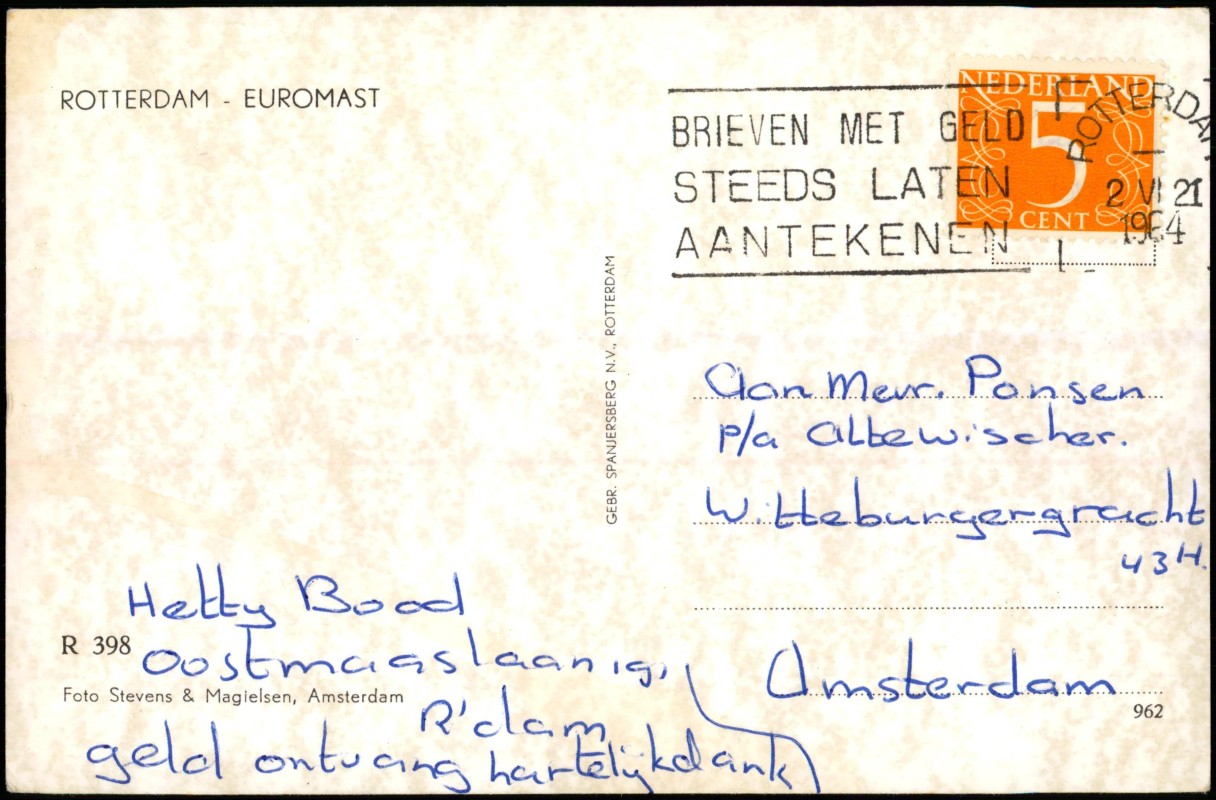 ROTTERDAM - EUROMAST
BRIEVEN MET GELD
STEEDS LATEN
AANTEKENEN
NEDERLAND
5
CENT
ROTTERDAM
2 VI 21
1964
GEBR. SPANJERSBERG N.V., ROTTERDAM
Aan Mevr. Ponsen
p/a Altewischer.
Witteburgergracht
43 H.
Amsterdam
962
Hetty Bood
R 398
Oostmaaslaan 19,
Foto Stevens & Magielsen, Amsterdam
R'dam
geld ontvang hartelijk dank